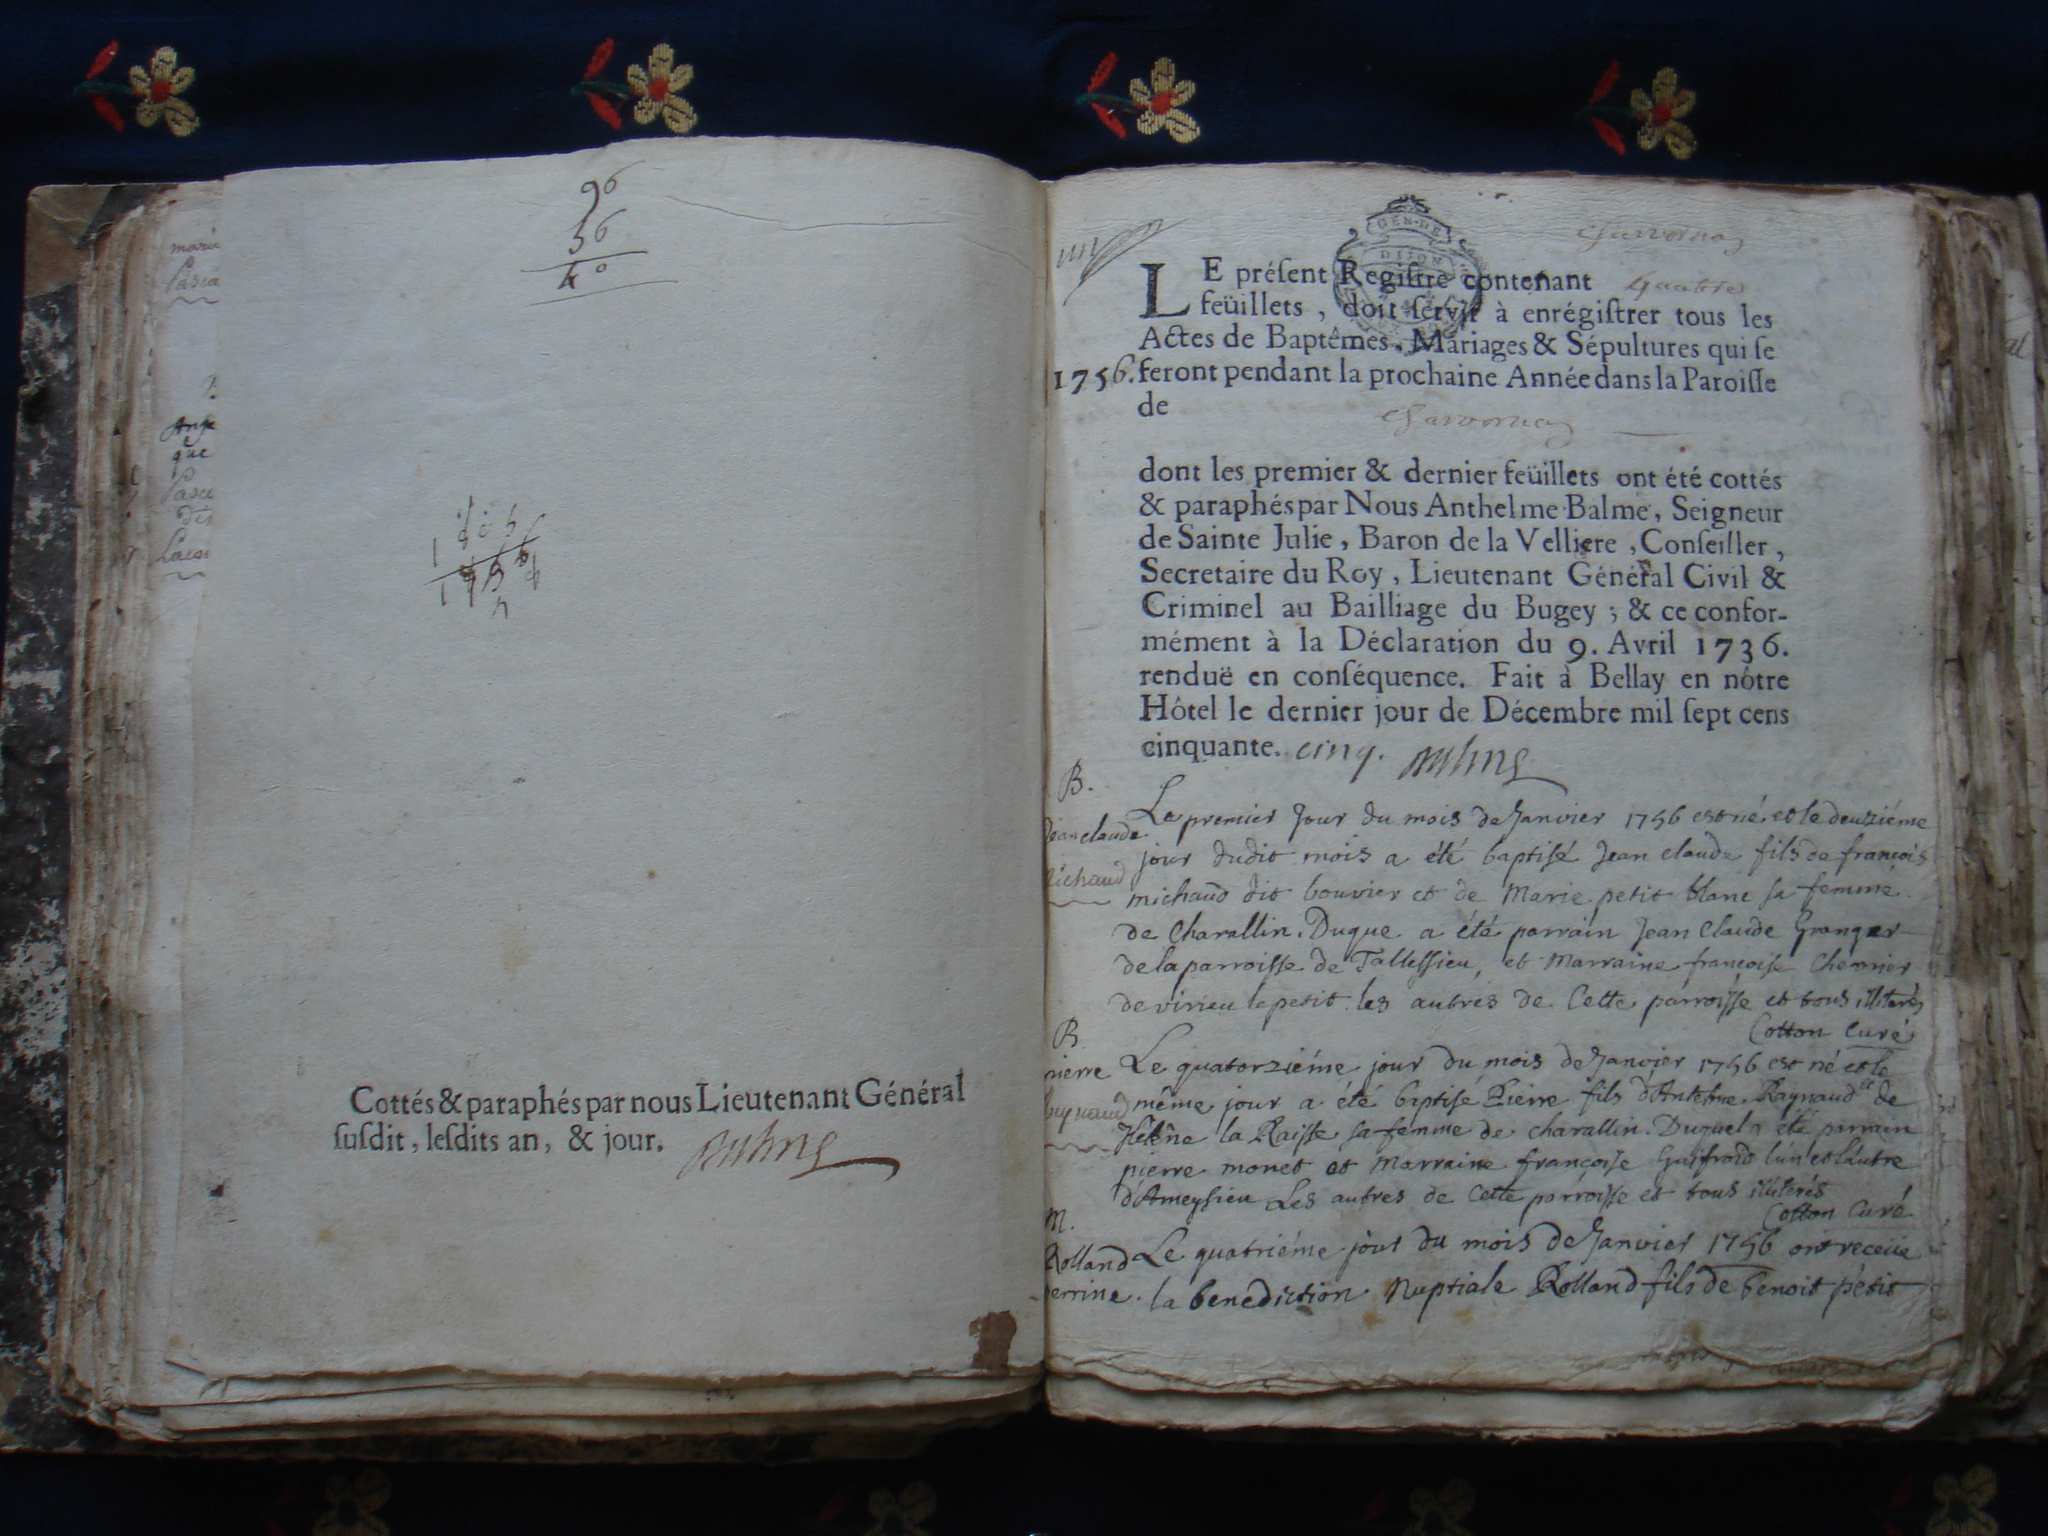 96
56
40
Cottés & paraphés par nous Lieutenant Général
ſuſdit, leſdits an, & jour.
GEN. DE
DIJON
LE préſent Regiſtre contenant quatre
feüillets, doit ſervir à enrégiſtrer tous les
Actes de Baptêmes, Mariages & Sépultures qui ſe
1756. feront pendant la prochaine Année dans la Paroiſſe
de
dont les premier & dernier feüillets ont été cottés
& paraphés par Nous Anthelme Balme, Seigneur
de Sainte Julie, Baron de la Velliere, Conſeiller,
Secretaire du Roy, Lieutenant Général Civil &
Criminel au Bailliage du Bugey; & ce confor-
mément à la Déclaration du 9. Avril 1736.
renduë en conſéquence. Fait à Bellay en nôtre
Hôtel le dernier jour de Décembre mil ſept cens
cinquante. cinq.
B.
Jean claude
Le premier Jour du mois de Janvier 1756 est né et le deuziéme
jour dudit mois a été baptisé Jean claude fils de françois
michaud dit bouvier et de Marie petit blanc sa femme
de Charallin. Duque a été parrain Jean Claude Granger
de la parroisse de Tallessieu, et Marraine françoise
de virieu le petit les autres de Cette parroisse et tous illiterés
Cotton Curé
B
pierre
Le quatorziéme jour du mois de Janvier 1756 est né et le
même jour a été baptisé Pierre fils d'Antelme Raynaud et de
Helêne la Raisse sa femme de charallin. Duquel a été parrain
pierre monet et Marraine françoise Guifrois l'un et l'autre
d'Ameysieu Les autres de Cette parroisse et tous illiterés
Cotton Curé
M.
Rolland
perrine.
Le quatriéme jour du mois de Janvier 1756 ont receüe
la benediction Nuptiale Rolland fils de benoit petit